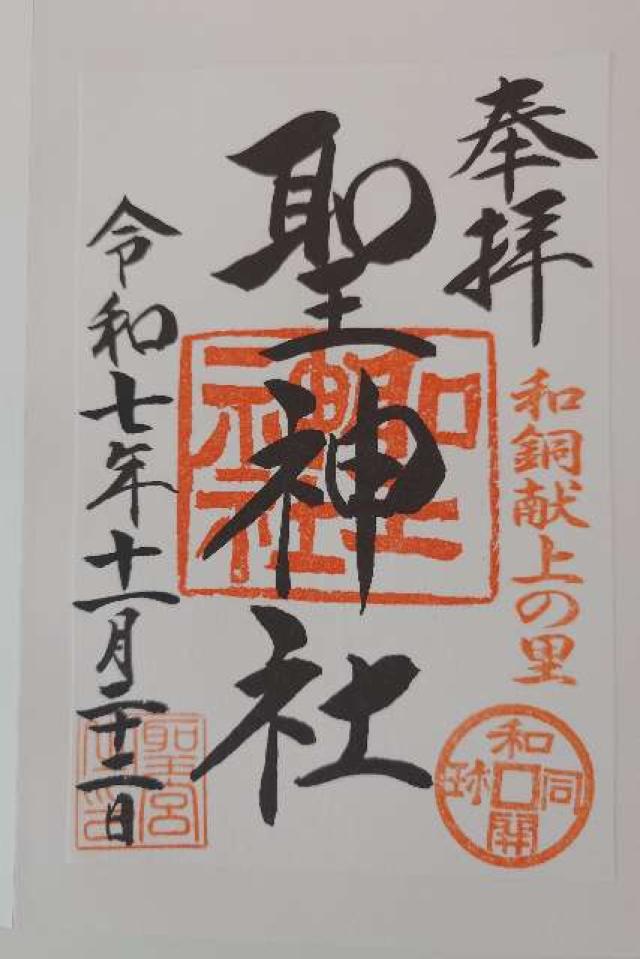 奉拝
和銅献上の里
和同開珎
聖神社
聖神社
令和七年十一月二十二日
聖宮